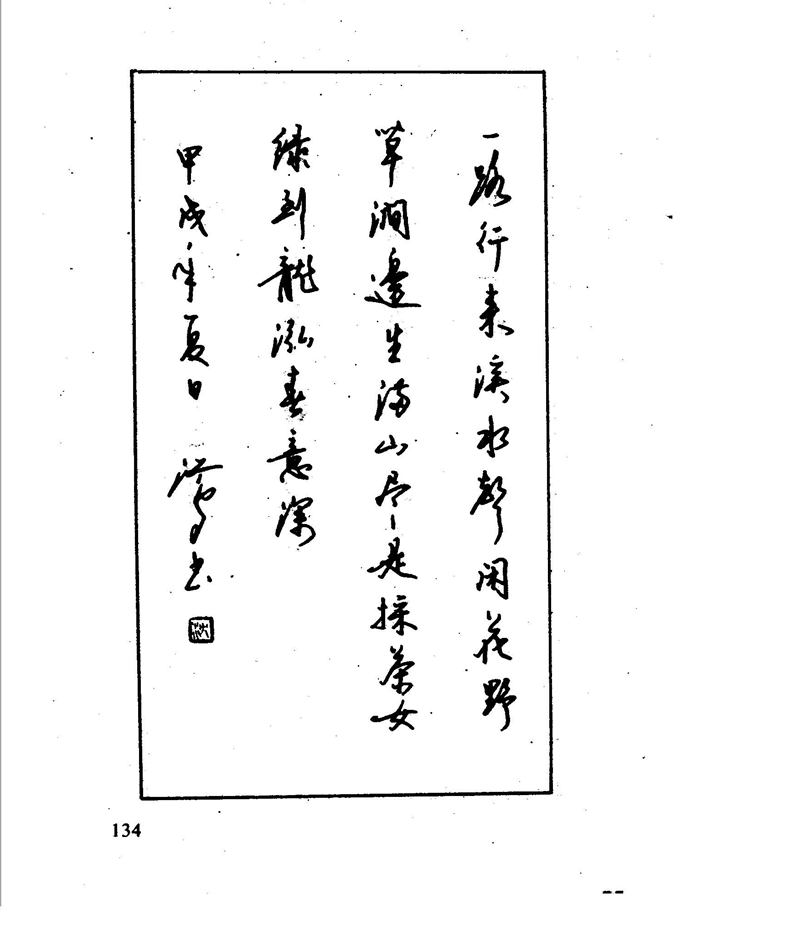 一路行来溪水声闲花野
草涧邊生满山尽是採茶女
绿到龍泓春意深
甲戌年夏日 書
134